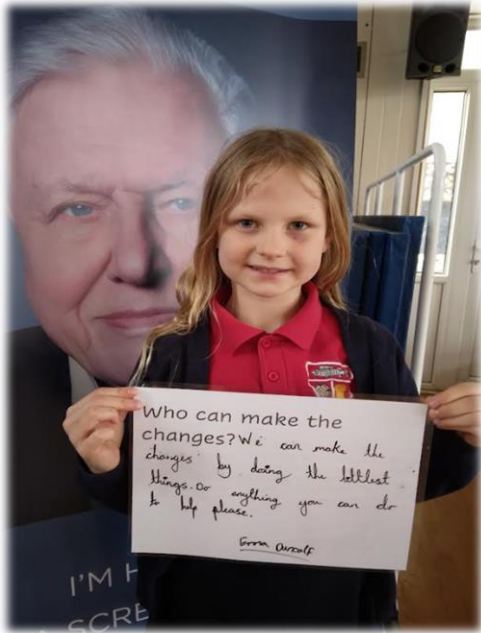 Who can make the
changes? We can make the
changes by doing the lottlest
things. Do anything you can do
to help please.
I'M
SCRE